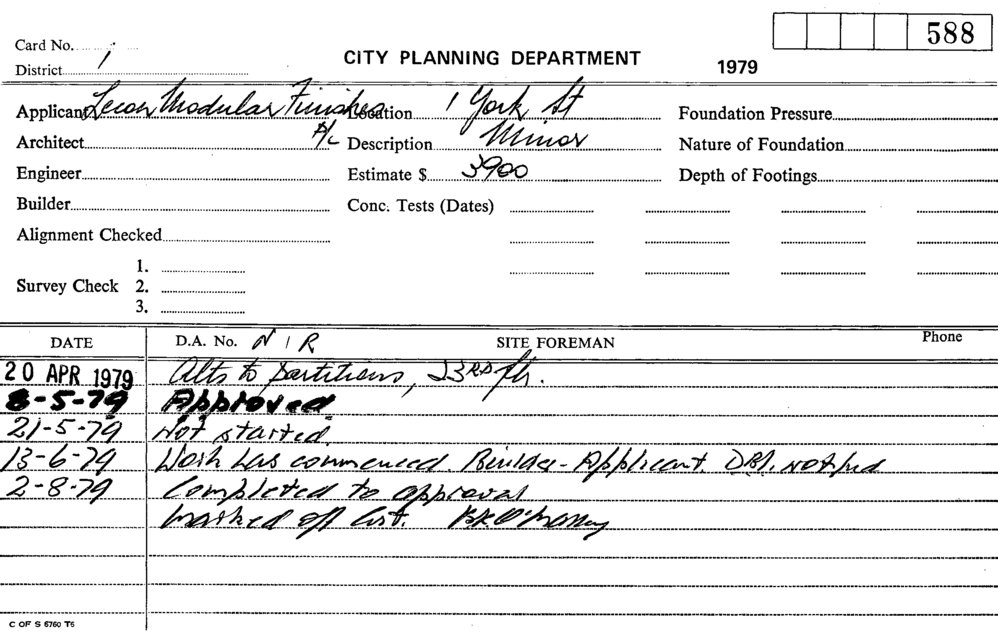 588
Card No.
District 1
CITY PLANNING DEPARTMENT
1979
Applicant Modular Finishes P/L
Location 1 York St
Foundation Pressure
Architect
Description Minor
Nature of Foundation
Engineer
Estimate $ 3900
Depth of Footings
Builder
Conc. Tests (Dates)
Alignment Checked
Survey Check 1.
2.
3.
DATE D.A. No. N I R SITE FOREMAN Phone
20 APR 1979 Alts to partitions, 23RD flr.
8-5-79 Approved
21-5-79 Not started.
13-6-79 Work has commenced. Builder-Applicant. notified
2-8-79 Completed to approval
Marked off list.
C OF S 6760 T6